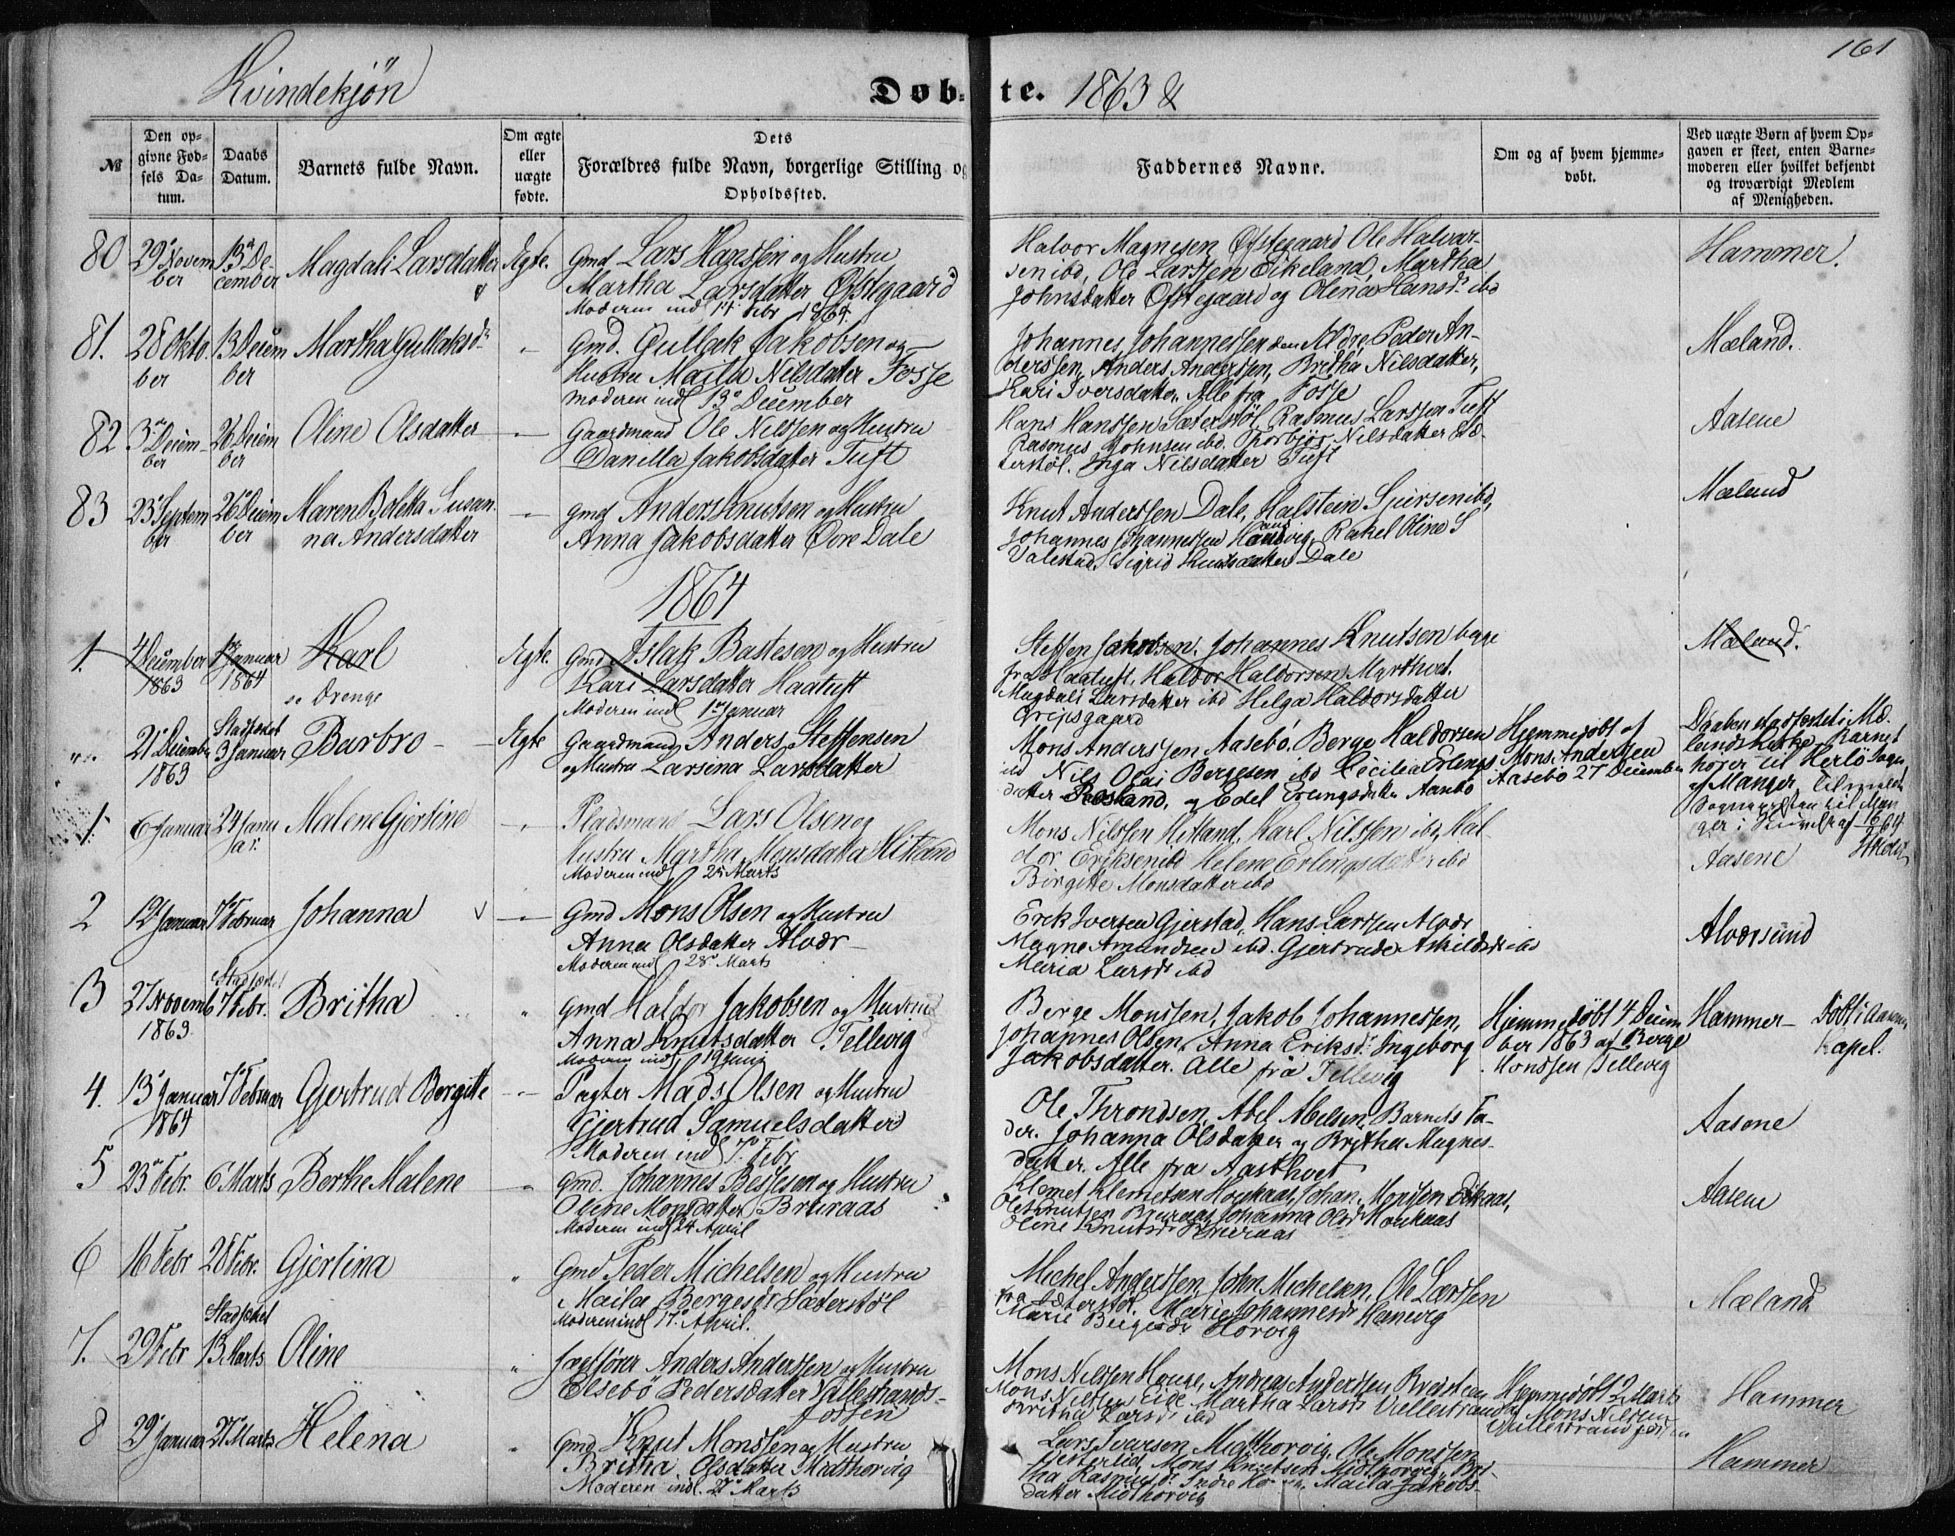 161
Kvindekjön
Døb-te. 1863 &
№
Den op-
givne Fød-
sels Da-
tum.
Daabs
Datum.
Barnets fulde Navn.
Om ægte
eller
uægte
fødte.
Dets
Forældres fulde Navn, borgerlige Stilling og
Opholdssted.
Faddernes Navne.
Om og af hvem hjemme-
døbt.
Ved uægte Børn af hvem Op-
gaven er skeet, enten Barne-
moderen eller hvilket bekjendt
og troværdigt Medlem
af Menigheden.
80
29 Novem
ber
13 De-
cember
Magdali Larsdatter
Ægte.
Gmd Lars Hanssen og Hustru
Martha Larsdatter Øfstegaard
Moderen ind 14 Febr 1864.
Halvor Magnesen Øfstegaard Ole Halvar-
sen ibd, Ole Larssen Eikeland, Martha
Johnsdatter Øfstegaard og Olena Hansdr ibd
Hammer.
81.
28 Okto
ber
13 Decem
ber
Martha Gullaksdr
Gmd. Gullak Jakobsen og
Hustru Maila Nilsdatter Fosse
Moderen indl 13 December
Johannes Johannessen den Ældre, Peder An-
derssen, Anders Anderssen, Britha Nilsdatter,
Kari Iversdatter. Alle fra Fosse
Mæland.
82
3 Decem-
ber
26 Decem
ber
Oline Olsdatter
Gaardmand Ole Nilssen og Hustru
Danilla Jakobsdatter Tuft
Hans Hanssen Sæterstøl, Rasmus Larssen Tuft
Rasmus Johnsen ibd. Thorbjør Nilsdatter Sæ-
terstøl. Inga Nilsdatter Tuft
Aasene
83
23 Septem
ber
26 Decem
ber
Maren Boletta Susan-
na Andersdatter
Gmd Anders Knutsen og Hustru
Anna Jakobsdatter Øvre Dale
Knut Anderssen Dale, Halstein Sjursen ibd,
Johannes Johannessen Hanevig, Rakel Oline S
Valestad. Sigrid Knutsdatter Dale
Mæland
1864
1.
4 December
1863
1 Januar
1864
Karl
se Drenge
Ægte.
Gmd Aslak Bastesen og Hustru
Kari Larsdatter Haatuft
Moderen indl 1 Januar
Steffen Jakobsen. Johannes Knutsen begge
fra Haatuft, Haldor Haldorsen Marthvet.
Magdali Larsdatter ibd Helga Haldorsdatter
Gripsgaard
Mæland.
21 Decembr
1863
Stadfæstet
3 Januar
Barbro
Ægte
Gaardmand Anders Steffensen
og Hustru Larsina Larsdatter
Mons Anderssen Aasebø. Berge Haldorsen
ibd Nils Olai Bergesen ibd Cecilia Erlings
datter Rosland, og Edel Erlingsdatter Aasebø
Hjemmedøbt af
Mons Anderssen
Aasebø 27 December
Daaben stadfæstet i Mæ-
lands Kirke, Barnet
hører til Herlø Sogn
af Manger
1.
6 Januar
24 Janu
ar.
Malene Gjertine
Pladsmand Lars Olsen og
Hustru Martha Monsdatter Hitland
Moderen indl 28 Marts
Mons Nilssen Hitland. Karl Nilssen ibd, Hal-
dor Eriksen ibd Helene Erlingsdatter ibd
Birgitte Monsdatter ibd
Aasene
2
12 Januar
7 Februar
Johanna
Gmd Mons Olsen og Hustru
Anna Olsdatter Alvær
Moderen indl 28 Marts
Erik Iversen Gjerstad, Hans Larssen Alvær
Magne Amundsen ibd. Gjertrude Askildsdr ibd
Maria Larsdr ibd
Alversund
3
27 Novemb
1863
Stadfæstet
7 Febr.
Britha
Gmd Haldor Jakobsen og Hustru
Anna Knutsdatter Tellevig
Moderen indl 19 Juni
Berge Monssen, Jakob Johannessen,
Johannes Olsen, Anna Eriksdr Ingeborg
Jakobsdatter. Alle fra Tellevig
Hjemmedøbt 4 Decem
ber 1863 af Berge
Monssen Tellevig
Hammer-
Døbt i Aasene
Kapel.
4.
13 Januar
1864
7 Februar
Gjertrud Bergitte
Pagter Mads Olsen og Hustru
Gjertrud Samuelsdatter
Moderen indl 7 Febr
Ole Throndsen, Abel Abelsen, Barnets Fa-
der. Johanna Olsdatter og Brytha Magnes-
datter. Alle fra Aasthvet
Aasene
5
23 Febr.
6 Marts
Berthe Malene
Gmd. Johannes Bessesen og Hustru
Oline Monsdatter Bruraas
Moderen indl 24 April
Klemet Klemetsen Horkaas, Johan Monssen Eikaas,
Ole Knutsen Bruraas, Johanna Olsdr Horkaas
Oline Knutsdr Bruraas
Aasene
6
16 Febr
28 Febr.
Gjertina
Gmd Peder Michelsen og Hustru
Maila Bergesdr Sæterstøl
Moderen indl 17 April.
Michel Anderssen, John Michelsen, Ole Larssen
fra Sæterstøl, Marie Johannesdr Hanevig
Marie Bergesdr Horvig
Mæland
7.
29 Febr
Stadfæstet
13 Marts
Oline
Jægtfører Anders Anderssen og Hustru
Elsebö Pedersdatter Vallestrands-
fossen
Mons Nilssen Hauge, Andreas Anderssen Breistein
Mons Nilssen Eide, Martha Larsdr Vallestrand
Britha Larsdr ibd
Hjemmedöbt 2 Marts
af Mons Nilssen
Hammer
8
29 Januar
27 Marts
Helena
Gmd Knut Monssen og Hustru
Britha Olsdatter Midthorvig
Moderen indl. 27 Marts
Lars Iversen Midthorvig, Ole Monssen
Mons Knutsen Midthorvig, Bri-
tha Rasmusdr Indre Ho Maila Jakobs-
datter Midthorvig
Hammer